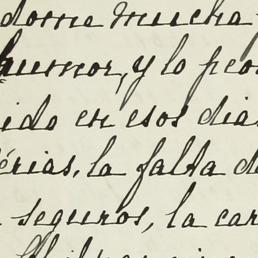 dome mucha
humor, y lo peor
ido en esos dias
érias, la falta de
seguros, la car